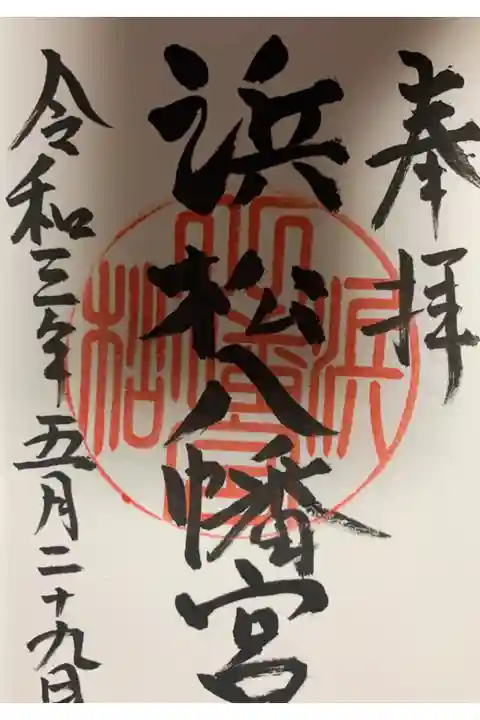 奉拝
浜松八幡宮
令和三年五月二十九日
浜松八幡宮